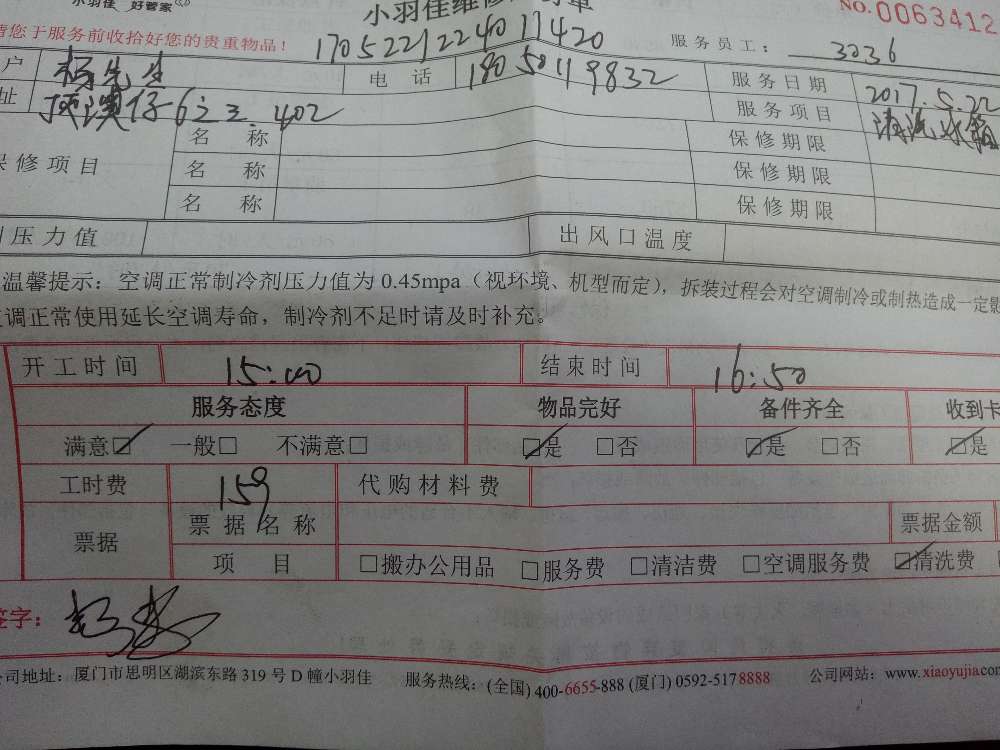 小羽佳 好管家
小羽佳维修 单
NO.0063412
请您于服务前收拾好您的贵重物品！
17052212240117420
服务员工： 3036
户 杨先生 电 话 18050119832 服务日期 2017.5.22
址 顶澳仔6之三.402 服务项目 清洗冰箱
保修项目 名 称 保修期限
名 称 保修期限
名 称 保修期限
压力值 出风口温度
温馨提示：空调正常制冷剂压力值为 0.45mpa（视环境、机型而定），拆装过程会对空调制冷或制热造成一定影
调正常使用延长空调寿命，制冷剂不足时请及时补充。
开工时间 15:00 结束时间 16:50
服务态度 物品完好 备件齐全 收到卡
满意☑ 一般□ 不满意□ ☑是 □否 ☑是 □否 ☑是
工时费 159 代购材料费
票据 票据名称 票据金额
项 目 □搬办公用品 □服务费 □清洁费 □空调服务费 ☑清洗费
签字：
公司地址：厦门市思明区湖滨东路 319 号 D 幢小羽佳 服务热线：(全国) 400-6655-888 (厦门) 0592-5178888 公司网站：www.xiaoyujia.com